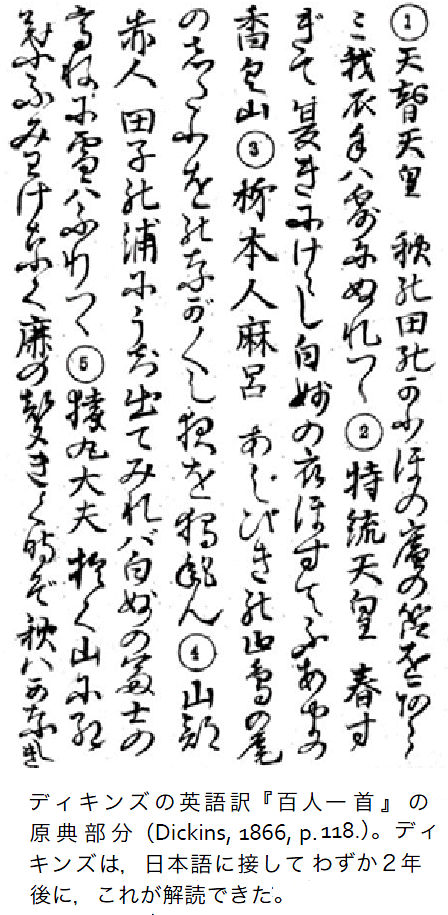 ① 天智天皇 秋の田のかりほの庵の笘をあら
ミ我衣手ハ露にぬれつゝ ② 持統天皇 春す
ぎて夏きにけらし白妙の衣ほすてふあまの
香具山 ③ 柿本人麻呂 あしびきの山鳥の尾
のしだりをのなが〳〵し夜を独かも寝ん ④ 山部
赤人 田子の浦にうち出てみれバ白妙の富士の
高ねに雪ハふりつゝ ⑤ 猿丸大夫 おく山に紅
葉ふみわけなく鹿の声きく時ぞ秋ハかなしき
ディキンズの英語訳『百人一首』の
原典部分 (Dickins, 1866, p.118.)。ディ
キンズは，日本語に接してわずか２年
後に，これが解読できた。